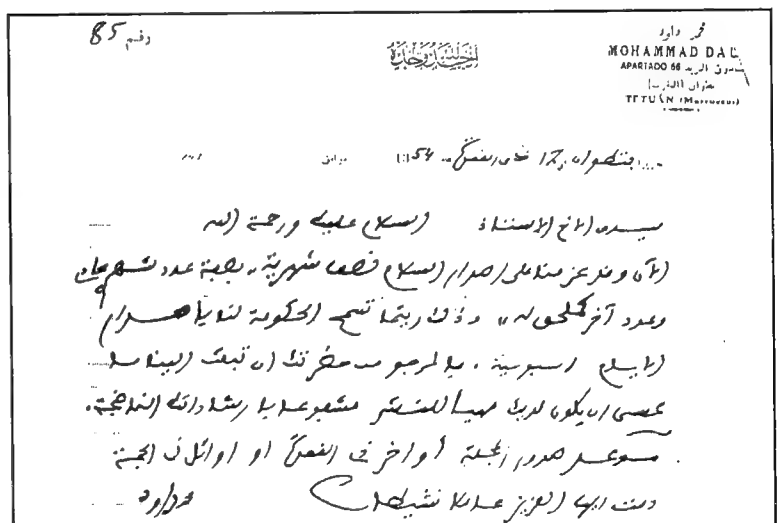 رقم 85
الحمد لله وحده
محمد داود
MOHAMMAD DAU
APARTADO 66 صندوق البريد
تطوان (المغرب)
TETUAN (Marruecos)
تطوان 12 ذي القعدة 1354 موافق
سيدي الأخ الأستاذ السلام عليك ورحمة الله
الآن وقد عزمنا على إصدار السلام نصف شهرية، بصفة عدد شهري
وعدد آخر كملحق له، وذلك ريثما تسمح الحكومة لنا بإصدار
السلام أسبوعية، فالمرجو من حضرتك أن تبعث إلينا بما
عسى أن يكون لديك مهيأ للنشر مشفوعا بإرشاداتك الناضجة.
موعد صدور المجلة أواخر ذي القعدة أو أوائل ذي الحجة
دمت أيها العزيز عاملا نشيطا محمد داود